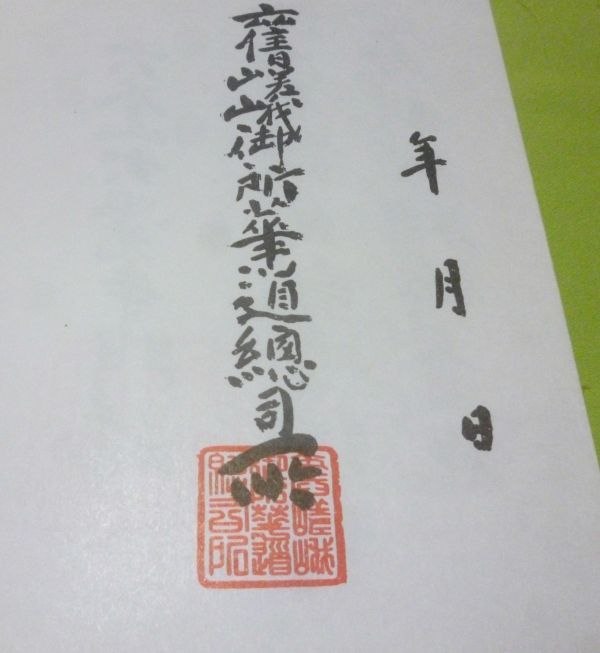 年月日
舊嵯峨御所華道總司所
舊嵯峨
御所華道
總司所